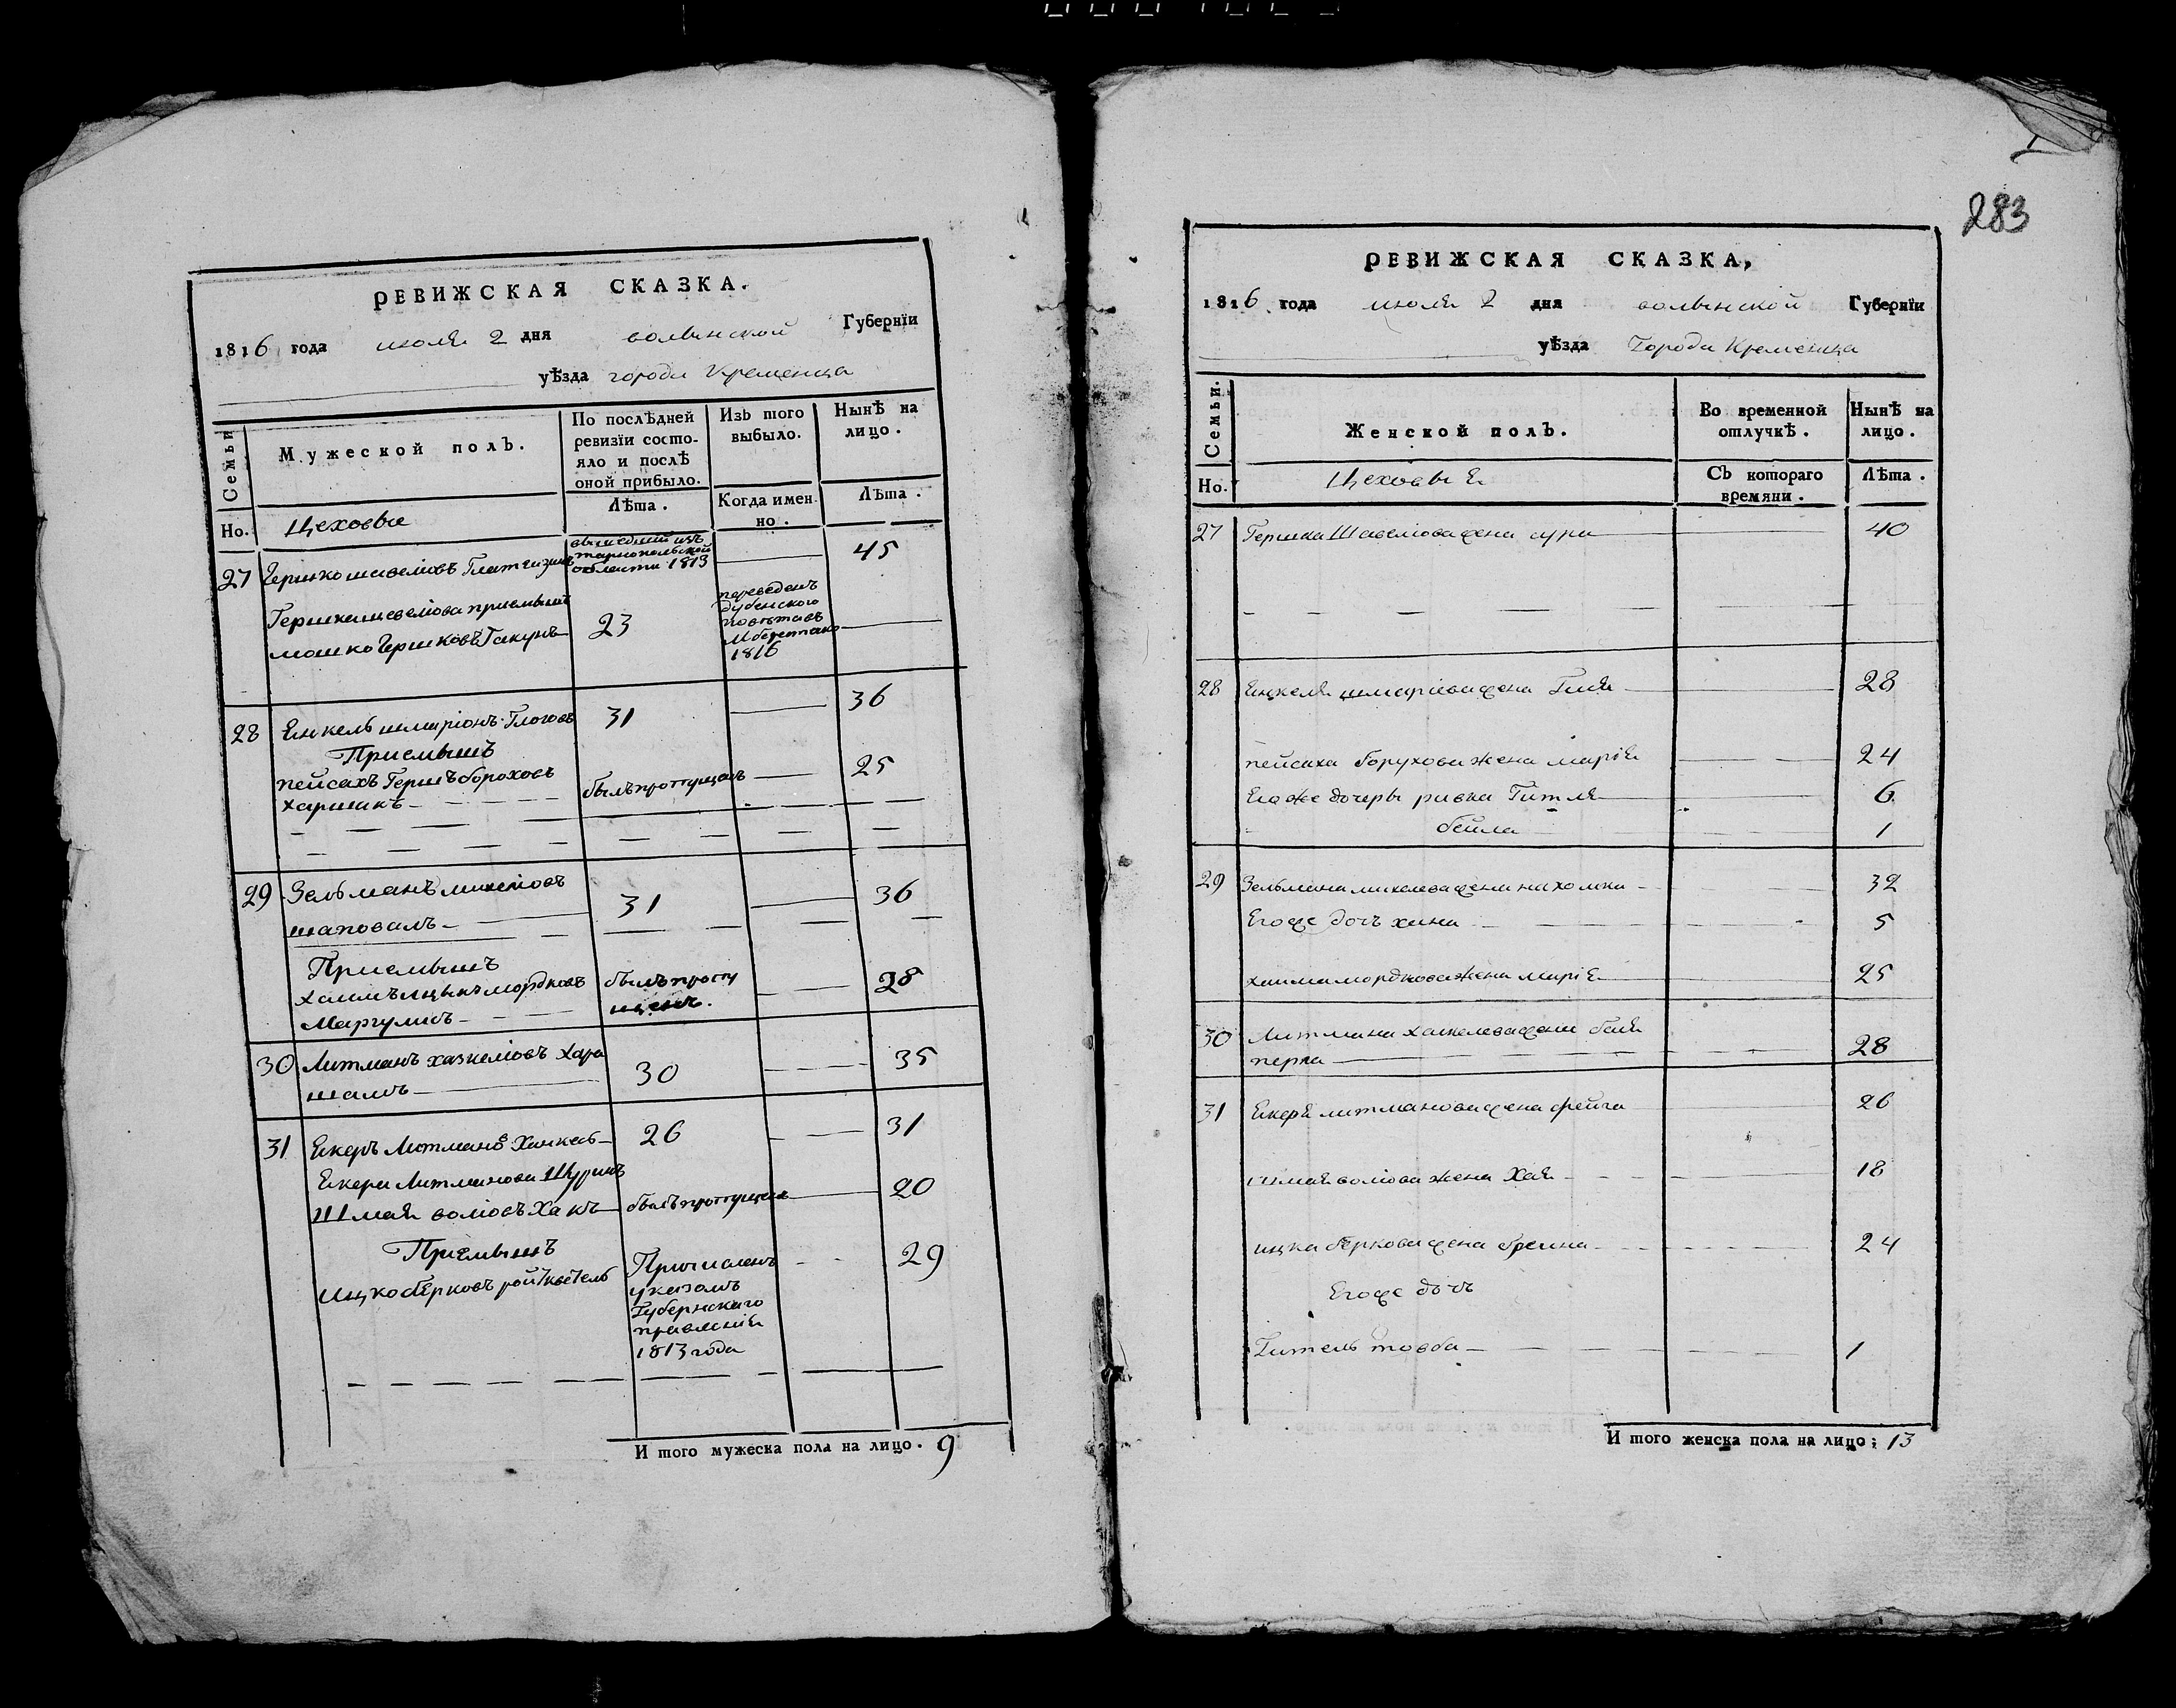 РЕВИЖСКАЯ СКАЗКА.
1816 года июля 2 дня волынской Губернїи
уѣзда города Кременца
Семьи
Мужеской полъ.
По послѣдней ревизїи состо-
яло и послѣ оной прибыло.
Изъ того выбыло.
Нынѣ на лицо.
Но.
Цеховые
Лѣта.
Когда имен-
но.
Лѣта.
27 Гершко шавелiовъ вышедший изъ тарнопольской области 1813 45
Гершка шавелiова приемышъ
мошко Гершковъ 23 переведенъ дубенского 1816
28 Енкель шмарiонъ 31 36
Приемышъ
пейсахъ Гершъ бороховъ
былъ пропущенъ 25
29 Зельманъ михелiовъ
шаповалъ 31 36
Приемышъ
хаимъ ицыкъ мордковъ былъ пропу
Маргулисъ щенъ. 28
30 Литманъ хазкелiовъ Хара
шамъ 30 35
31 Екеръ Литмановъ 26 31
Екера Литманова Шуринъ
Шмая волiовъ былъ пропущенъ 20
Приемышъ
ицко берковъ Причисленъ 29
указомъ
Губернскаго
правленiя
1813 года
И того мужеска пола на лицо. 9
283
РЕВИЖСКАЯ СКАЗКА,
1816 года июля 2 дня волынской Губернїи
уѣзда Города Кременца
Семьи.
Женской полъ.
Во временной отлучкѣ.
Нынѣ на лицо.
Но.
Цеховые
Съ котораго времяни.
Лѣта.
27 Гершка Шавелiова жена сура 40
28 Енкеля шмарiева жена 28
пейсаха борухова жена марiя 24
Его же дочеры ривка Гитля 6
бейла 1
29 Зельмана михелева жена нахомка 32
Его же дочъ хана 5
хаима мордкова жена марiя 25
30 Литмана хаскелева жена бейя
перла 28
31 Екера литманова жена фейга 26
шмая волiова жена Хая 18
ицка беркова жена фрейна 24
Его же дочъ
Гитель товба 1
И того женска пола на лицо; 13